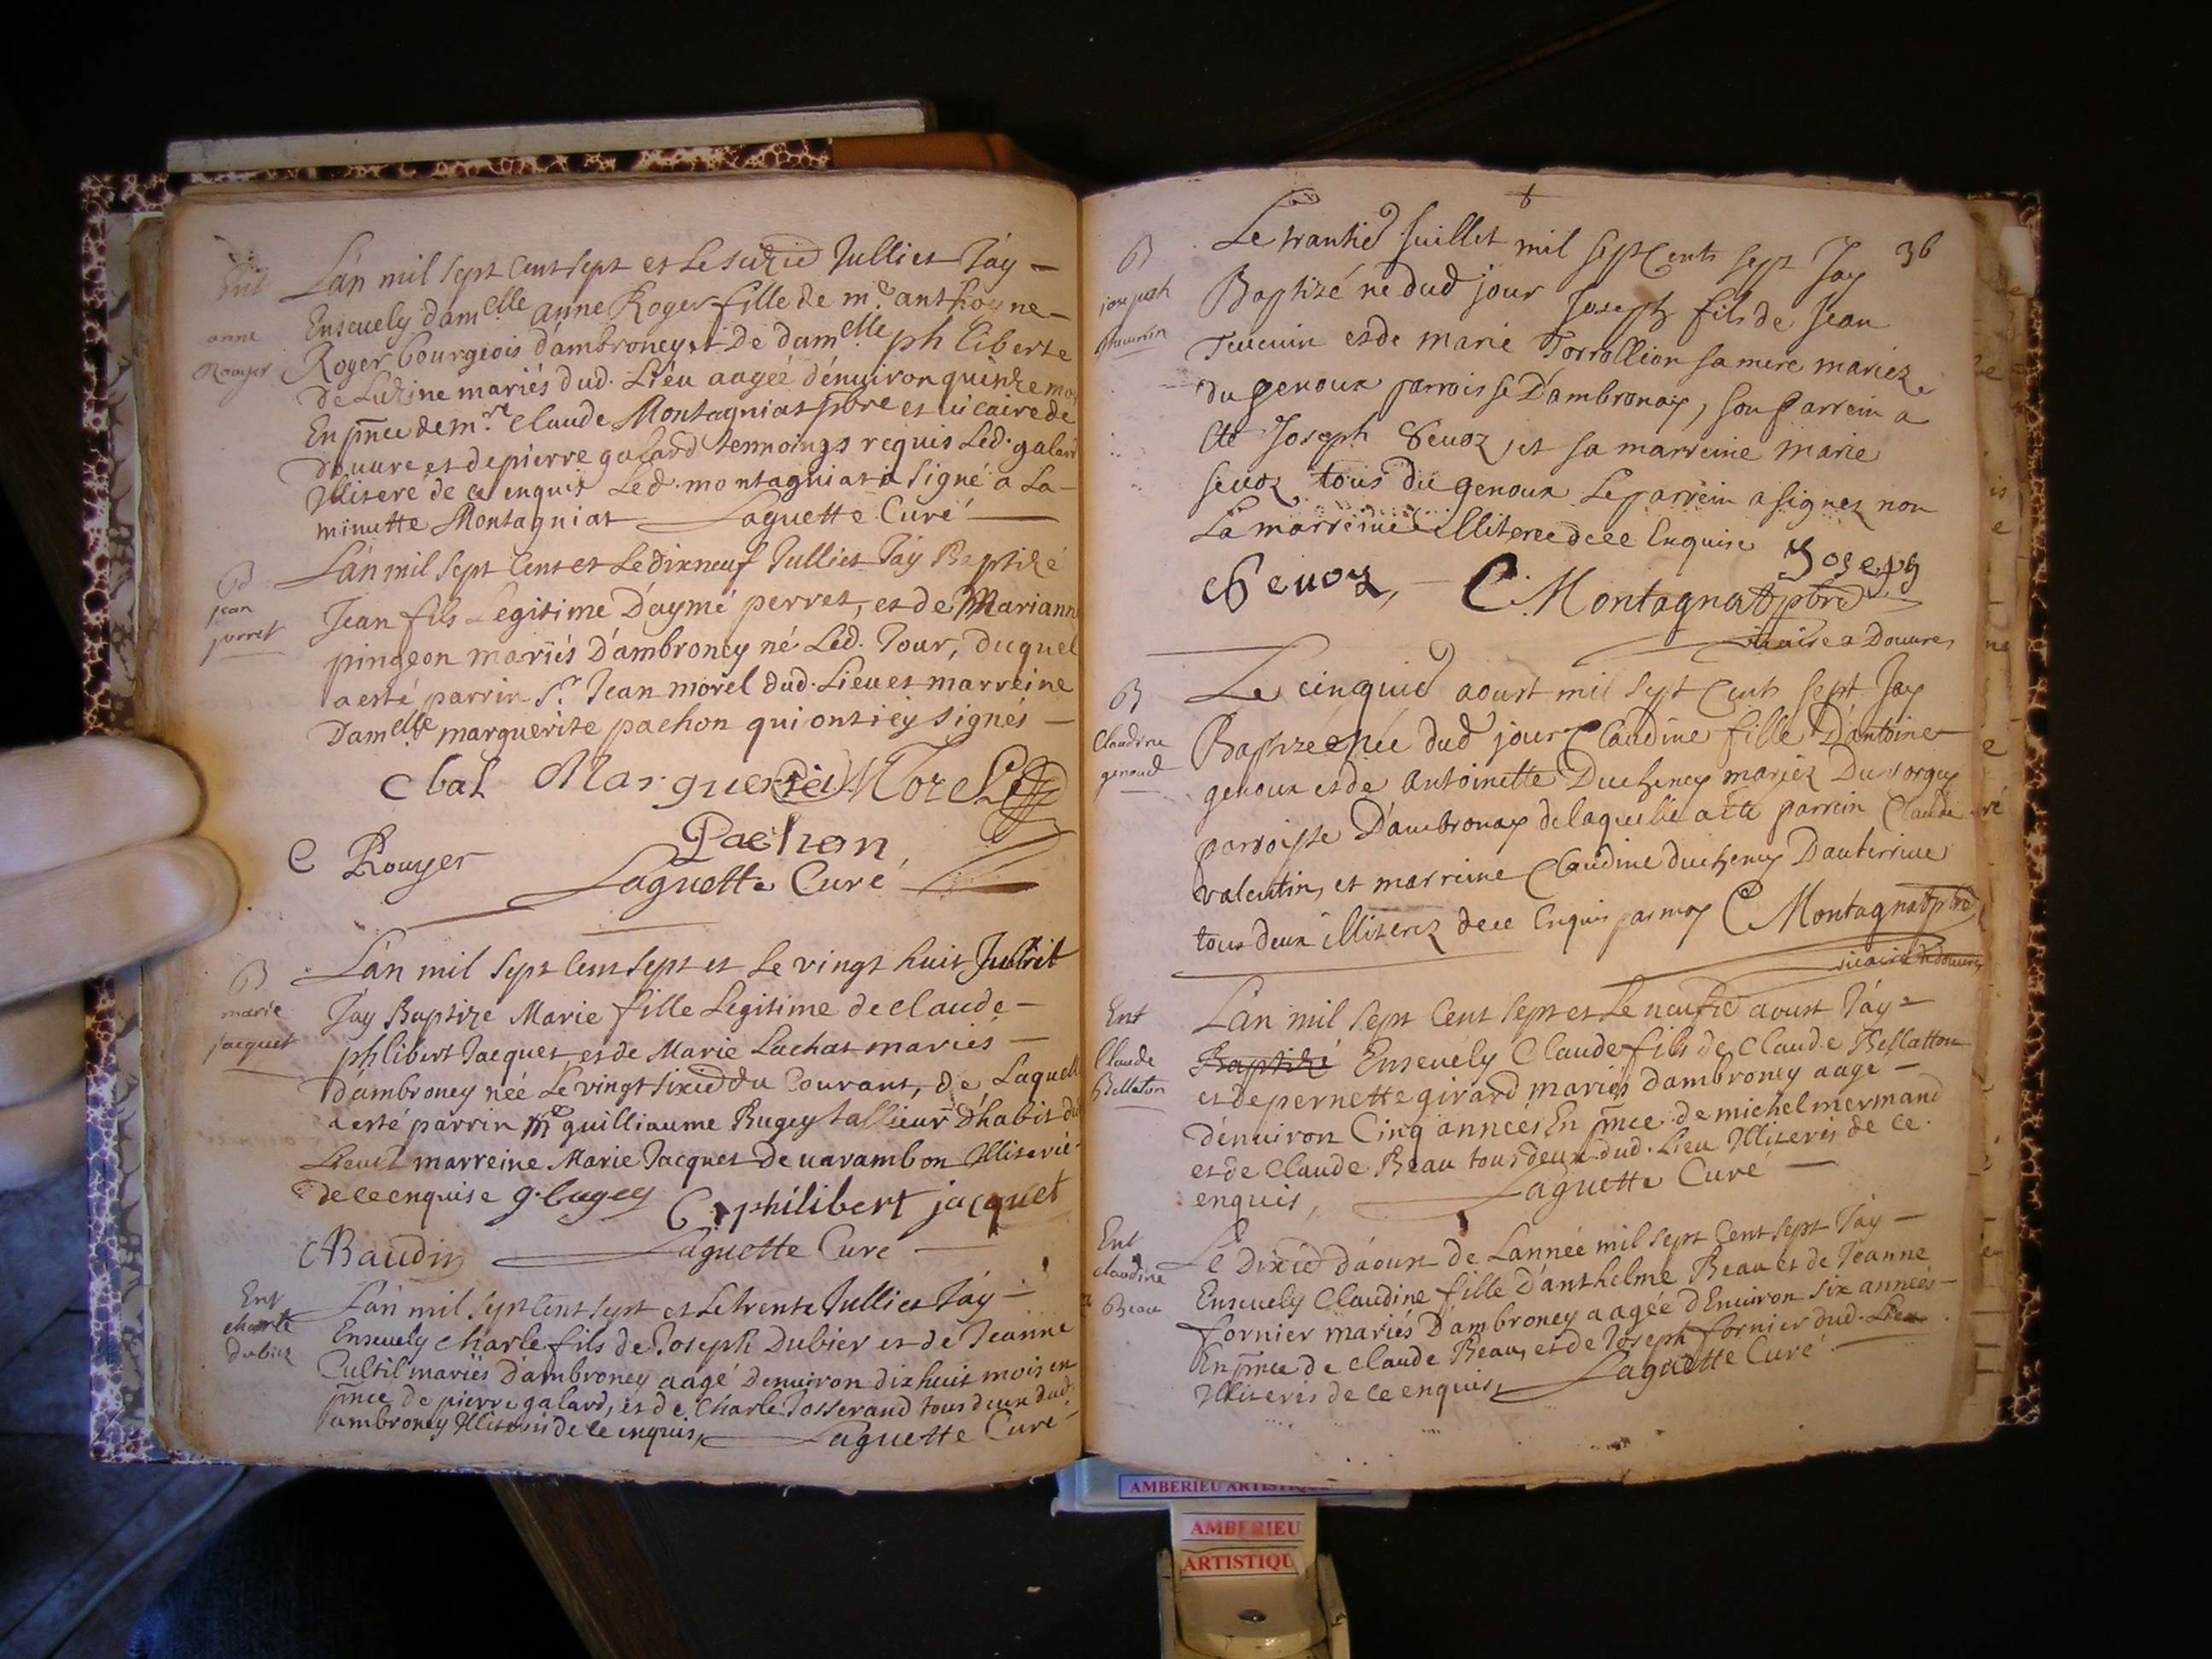 Ent
anne
Rouyer
L'an mil sept Cent sept et Le seizie Jullict J'ay
Enseuely damelle anne Roger fille de mr. anthoyne
Roger bourgeois d'ambroney et De damelle philiberte
De Luzine mariés dud. Liéu aagéé d'enuiron quinze mois
En pnce de mre Claude Montagniat pbre et uicaire de
douure et de pierre galard temoings requis Led. galard
Illiteré de ce enquis Led. montagniat a signé a La
minutte Montagniat Laguette Curé
B
jean
perret
L'an mil sept Cent et Le dixneuf Jullict J'ay Baptizé
Jean fils Legitime D'aymé perret, et de Mariann
pingeon mariés D'ambroney né Led. Jour, duquel
a esté parrin Sr. Jean morel dud. Lieu et marreine
Damelle marguerite pachon qui ont icy signés
Cbal Marguerite Morel
Pachon
C Rouyer
Laguette Curé
B
marie
jacquet
L'an mil sept Cent sept et Le vingt huit Juillet
J'ay Baptize Marie fille Legitime de claude
philibert Jacquet et de Marie Lachat mariés
d'ambroney née Le vingt sixie du Courant, de Laquelle
a esté parrin me guilliaume Bugey tallieur D'habit du
Lieu et marreine Marie Jacquet De uarambon Illiterée
de ce enquise g. bugey C philibert jacquet
CBaudin Laguette Cure
Ent
charle
dubiez
L'an mil sept Cent sept et Le trente Jullict J'ay
Enseuely charle fils de Joseph Dubier et de Jeanne
Cultil mariës d'ambroney aagé D'enuiron dix huit mois en
pnce de pierre galard, et de Charle Josserand tous deux dud.
ambroney Illiterés de ce enquis, Laguette Curé
36
B
joseph
Le trantie Juillet mil sept Cents sept Jay
Baptizé né dud jour Joseph fils de Jean
Teuenin et de marie Torrollion sa mere mariez
du genoux parroisse D'ambronay, son parrein a
été Joseph Seuoz, et sa marreine marie
seuoz tous du genoux Le parrein a signez non
La marreine illiteree de ce Enquise Joseph
Seuoz, C. Montagnat pbre
uicaire a Douures
B
Claudine
genoud
Le cinquie aoust mil sept Cents sept Jay
Baptizee née dud jour Claudine fille D'antoine
genoux et de Antoinette Ducheney mariez Du
parroisse D'ambronay de laquelle a été parrein Claude
valentin, et marreine Claudine ducheney D'auterriue
tous deux illiterez de ce Enquis par moy C Montagnat pbre
uicaire de douures
Ent
Claude
Bellaton
L'an mil sept Cent sept et Le neufie aoust J'ay
Baptizé Enseuely Claude fils de Claude Bellatton
et de pernette girard mariés d'ambroney aagé
d'enuiron Cinq annéés En pnce de michel mermand
et de Claude Beau tous deux dud. Lieu Illiterés de ce
enquis, Laguette Curé
Ent
claudine
Beau
Le dixie d'aoust de L'année mil sept Cent sept J'ay
Enseuely Claudine fille D'anthelme Beau et de Jeanne
fornier mariés D'ambroney aagée d'Enuiron six annéés
En pnce de claude Beau, et de Joseph fornier dud. Lieu
Illiterés de ce enquis, Laguette Curé
AMBERIEU ARTISTIQUE
AMBERIEU
ARTISTIQU